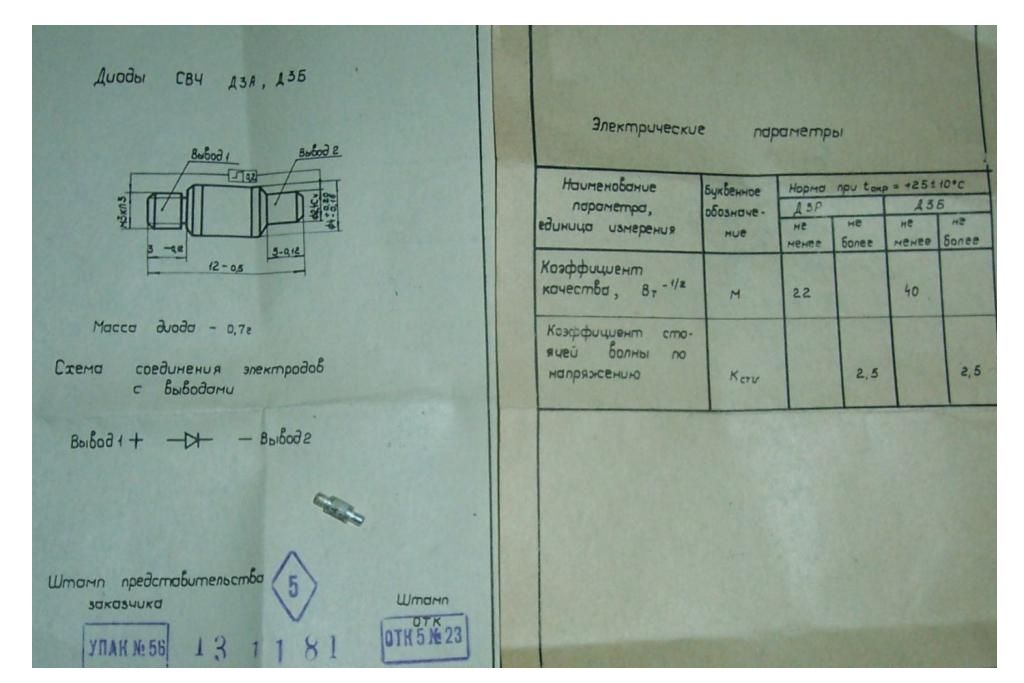 Диоды СВЧ Д3А, Д3Б
Вывод 1
Вывод 2
0,2
М3кл3
3
5-0,12
12-0,5
Масса диода - 0,7г
Схема соединения электродов
с выводами
Вывод 1 + — Вывод 2
Штамп представительства
заказчика
5
Штамп
ОТК
УПАК № 56
13 11 81
ОТК 5 № 23
Электрические параметры
Наименование
параметра,
единица измерения
Буквенное
обозначе-
ние
Норма при tокр = +25±10°С
Д3Б
не
менее
не
более
не
менее
не
более
Коэффициент
качества, Вт -1/2
М
22
40
Коэффициент сто-
ячей волны по
напряжению
Kстu
2,5
2,5